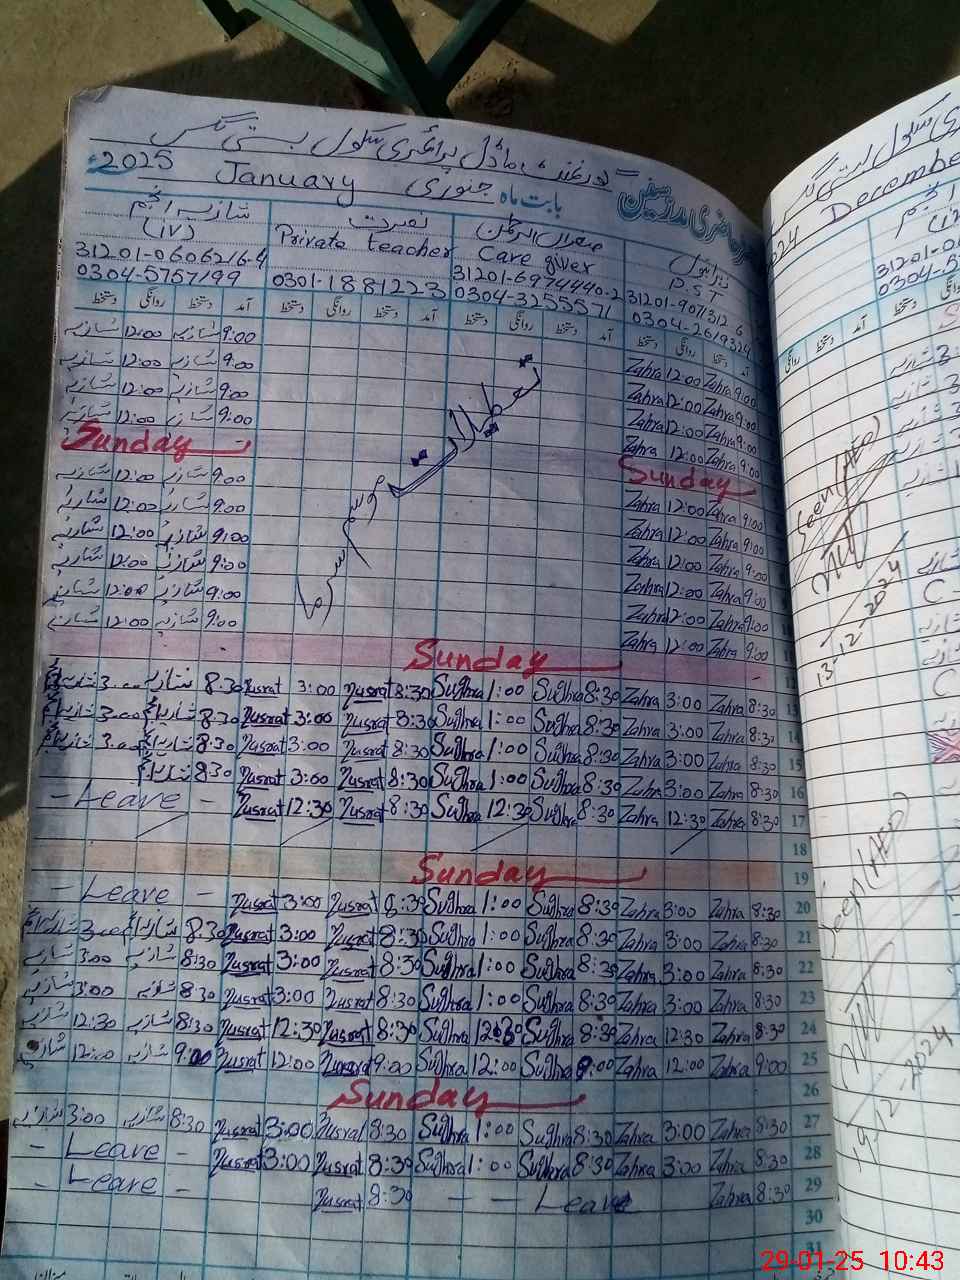 گورنمنٹ ماڈل پرائمری سکول بستی
2025 January جنوری بابت ماہ رجسٹر حاضری مدرسین
شازیہ انجم
(IV)
31201-0606216-4
0304-5757199
نصرت
Private teacher
0301-1881223
Care giver
31201-6974440-2
0304-3255571
P.S.T
0304-2619324
دستخط روانگی دستخط آمد دستخط روانگی دستخط آمد دستخط روانگی دستخط آمد دستخط روانگی دستخط آمد
شازیہ 12:00 شازیہ 9:00 Zahra 12:00 Zahra 9:00
شازیہ 12:00 شازیہ 9:00 Zahra 12:00 Zahra 9:00
شازیہ 12:00 شازیہ 9:00 Zahra 12:00 Zahra 9:00
شازیہ 12:00 شازیہ 9:00 Zahra 12:00 Zahra 9:00
Sunday Sunday
شازیہ 12:00 شازیہ 9:00 Zahra 12:00 Zahra 9:00
شازیہ 12:00 شازیہ 9:00 Zahra 12:00 Zahra 9:00
شازیہ 12:00 شازیہ 9:00 Zahra 12:00 Zahra 9:00
شازیہ 12:00 شازیہ 9:00 Zahra 12:00 Zahra 9:00
شازیہ 12:00 شازیہ 9:00 Zahra 12:00 Zahra 9:00
شازیہ 12:00 شازیہ 9:00 Zahra 12:00 Zahra 9:00
موسم سرما تعطیلات
Sunday
شازیہ 3:00 شازیہ 8:30 Nusrat 3:00 Nusrat 8:30 Sughra 1:00 Sughra 8:30 Zahra 3:00 Zahra 8:30 13
شازیہ 3:00 شازیہ 8:30 Nusrat 3:00 Nusrat 8:30 Sughra 1:00 Sughra 8:30 Zahra 3:00 Zahra 8:30 14
شازیہ 3:00 شازیہ 8:30 Nusrat 3:00 Nusrat 8:30 Sughra 1:00 Sughra 8:30 Zahra 3:00 Zahra 8:30 15
شازیہ 8:30 Nusrat 3:00 Nusrat 8:30 Sughra 1:00 Sughra 8:30 Zahra 3:00 Zahra 8:30 16
- Leave - Nusrat 12:30 Nusrat 8:30 Sughra 12:30 Sughra 8:30 Zahra 12:30 Zahra 8:30 17
18
Sunday 19
- Leave - Nusrat 3:00 Nusrat 8:30 Sughra 1:00 Sughra 8:30 Zahra 3:00 Zahra 8:30 20
شازیہ 3:00 شازیہ 8:30 Nusrat 3:00 Nusrat 8:30 Sughra 1:00 Sughra 8:30 Zahra 3:00 Zahra 8:30 21
شازیہ 3:00 شازیہ 8:30 Nusrat 3:00 Nusrat 8:30 Sughra 1:00 Sughra 8:30 Zahra 3:00 Zahra 8:30 22
شازیہ 3:00 شازیہ 8:30 Nusrat 3:00 Nusrat 8:30 Sughra 1:00 Sughra 8:30 Zahra 3:00 Zahra 8:30 23
شازیہ 12:30 شازیہ 8:30 Nusrat 12:30 Nusrat 8:30 Sughra 12:30 Sughra 8:30 Zahra 12:30 Zahra 8:30 24
شازیہ 12:00 شازیہ 9:00 Nusrat 12:00 Nusrat 9:00 Sughra 12:00 Sughra 9:00 Zahra 12:00 Zahra 9:00 25
Sunday 26
شازیہ 3:00 شازیہ 8:30 Nusrat 3:00 Nusrat 8:30 Sughra 1:00 Sughra 8:30 Zahra 3:00 Zahra 8:30 27
- Leave - Nusrat 3:00 Nusrat 8:30 Sughra 1:00 Sughra 8:30 Zahra 3:00 Zahra 8:30 28
- Leave - Nusrat 8:30 - - Leave Zahra 8:30 29
30
31
December
Seen (AEO)
13-12-2024
Seen (AEO)
19-12-2024
29-01-25 10:43